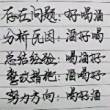 存在问题:好喝酒
分析原因:酒好喝
总结经验:喝酒好
整改措施:喝好酒
努力方向:酒喝好